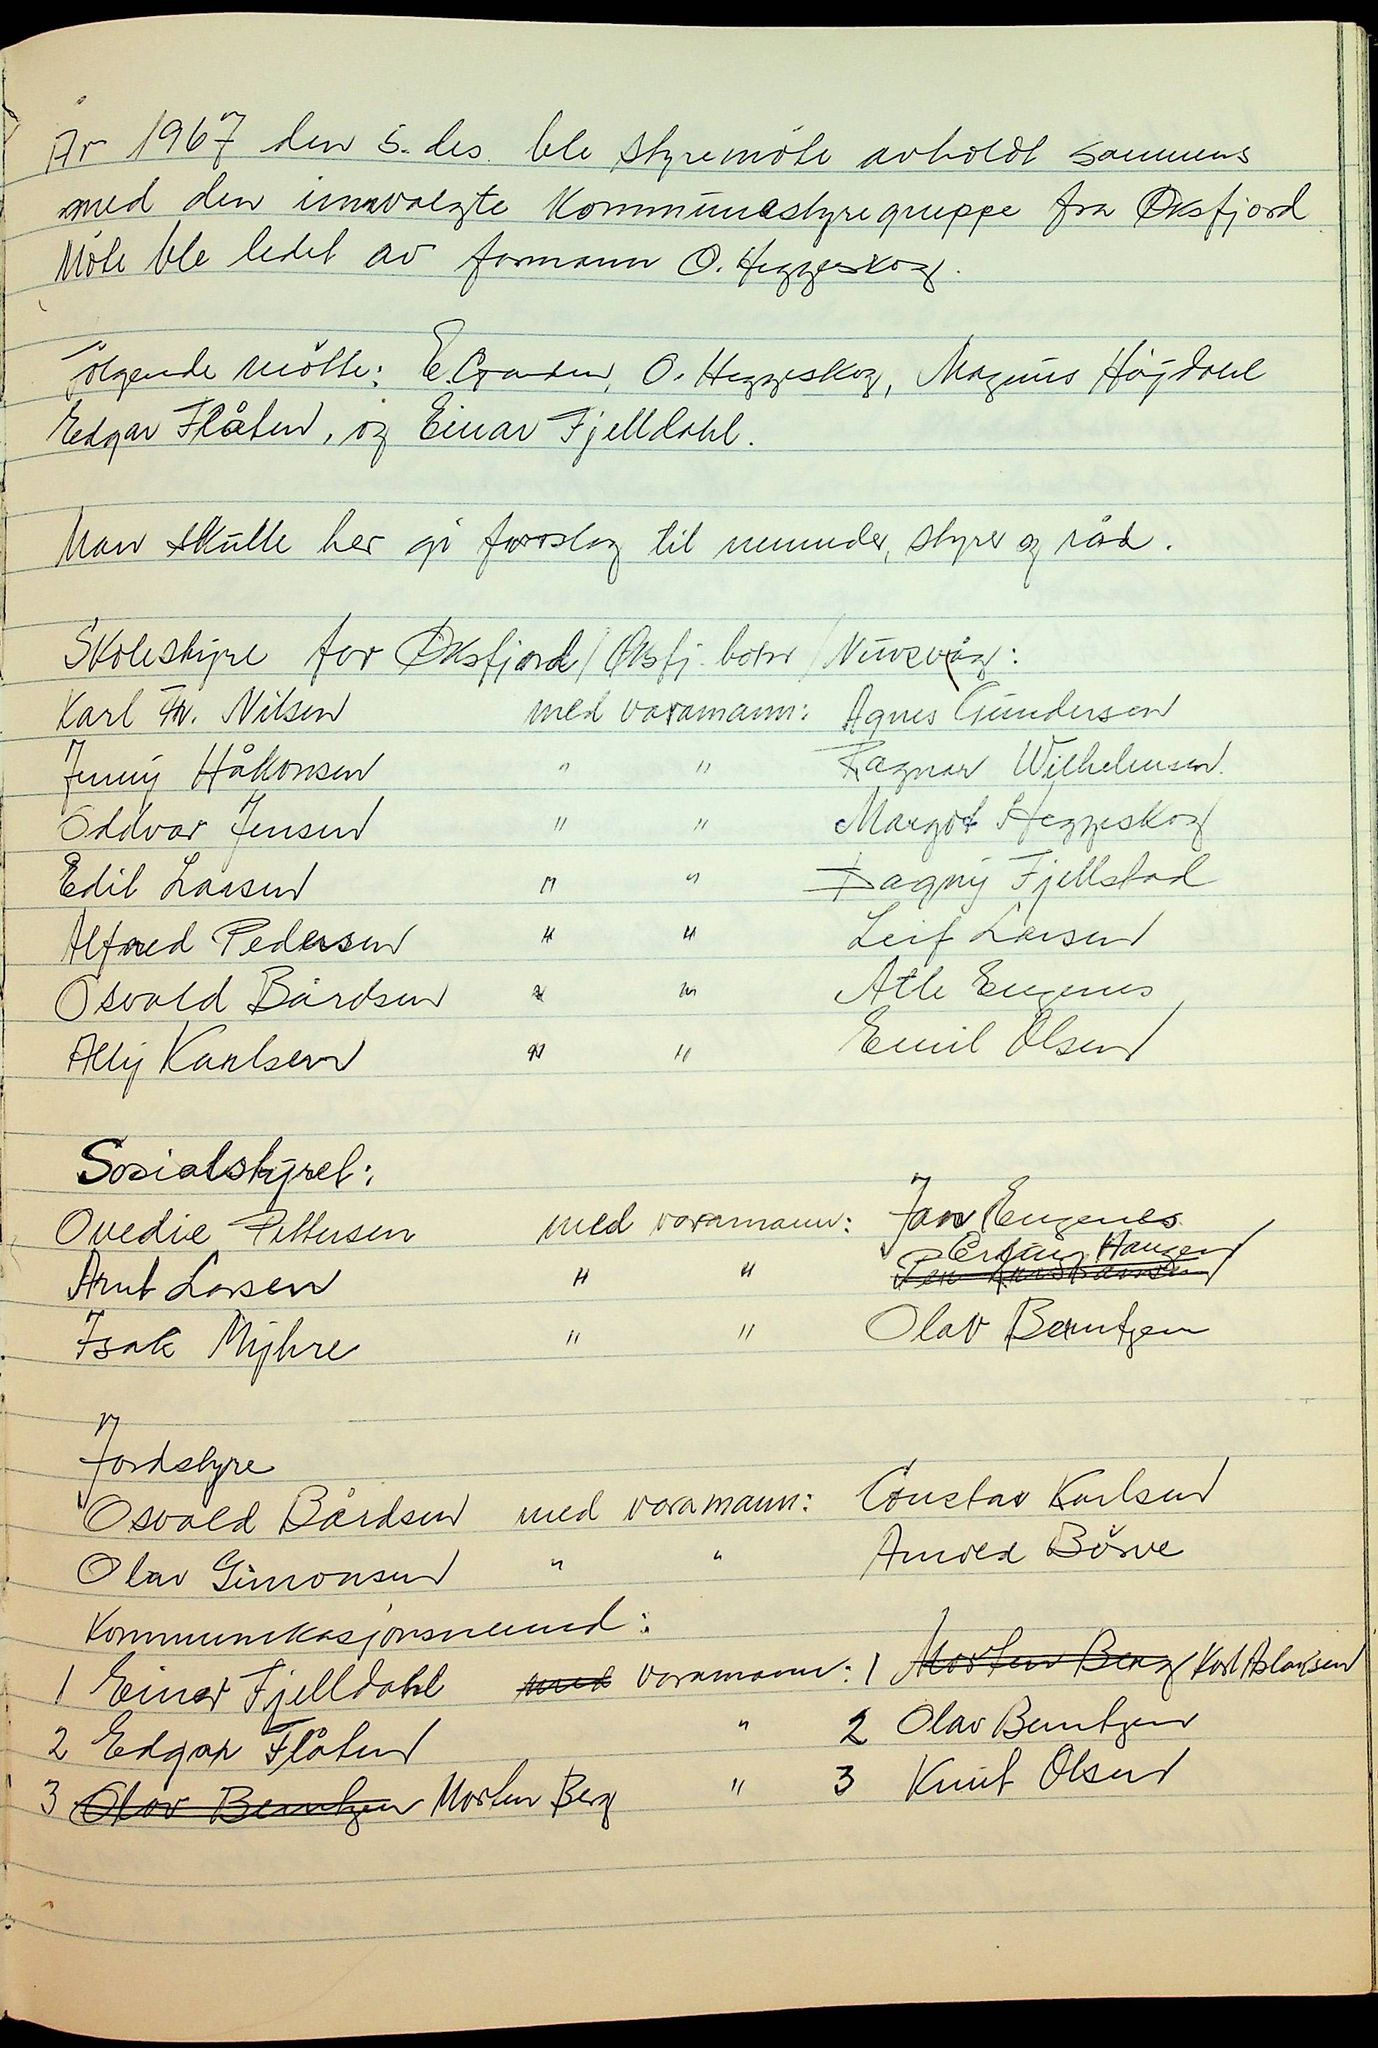 År 1967 den 5. des. ble styremöte avholdt sammens
med den innvalgte Kommunestyregruppe fra Øksfjord
Möte ble ledet av formann O. Heggeskog.
Følgende mötte: E. O. Heggeskog, Magnus Högdahl
Edgar Flåten, og Einar Fjelldahl.
Man skulle her gi forslag til nemnder, styrer og råd.
Skolestyre for Øksfjord / Øksfj. botn / Nuvsvåg:
Karl Fr. Nilsen med varamann: Agnes Gundersen
Jenny Håkonsen " " Ragnar Wilhelmsen.
Oddvar Jensen " " Margot Heggeskog
Edit Larsen " " Dagny Fjellstad
Alfred Pedersen " " Leif Larsen
Osvald Bårdsen " " Atle Eugenes
Ally Karlsen " " Emil Olsen
Sosialstyret:
Ovedie Pettersen med varamann: Jan Eugenes
Erling Hansen
Arnt Larsen " "
Isak Myhre " " Olav Berntzen
Jordstyre
Osvald Bårdsen med varamann: Gustav Karlsen
Olav Simonsen " " Arnold Börve
Kommunikasjonsnemnd:
1 Einar Fjelldahl med varamann: 1 Morten Berg Karl Aslaksen
2 Edgar Flåten " 2 Olav Berntzen
3 Olav Berntzen Morten Berg " 3 Knut Olsen